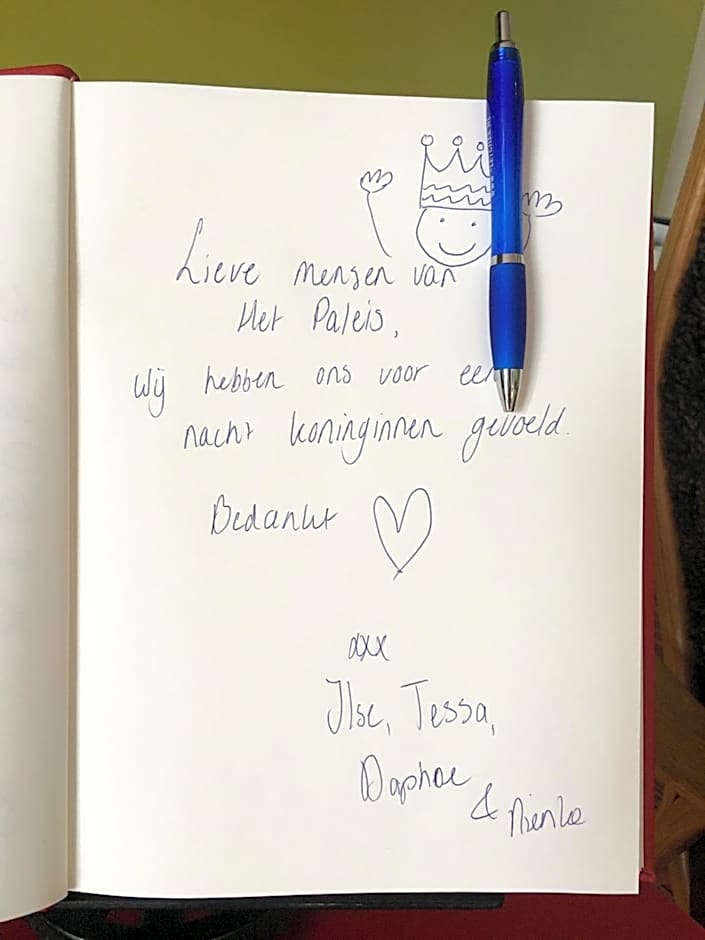 Lieve mensen van
Het Paleis,
Wij hebben ons voor een
nacht koninginnen gevoeld.
Bedankt
xxx
Ilse, Tessa,
Daphne
& Nienke